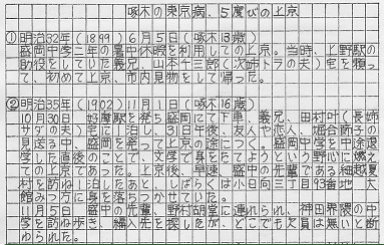 啄木の東京病、5度びの上京
①明治32年(1899)6月5日(啄木13歳)
盛岡中学二年の暑中休暇を利用しての上京。当時、上野駅の
助役をしていた義兄、山本千三郎(次姉トラの夫)宅を頼っ
て、初めて上京、市内見物をして帰った。
②明治35年(1902)11月1日(啄木16歳)
10月30日 好摩駅を発ち盛岡にて下車、義兄、田村叶(長姉
サダの夫)宅に1泊し、31日午後、友人や恋人、堀合節子の
見送る中、盛岡を発って上京の途につく。盛岡中学を中途退
学した直後のことで、文学で身をたてようという野心に燃え
ての上京であった。上京後、早速、盛中の先輩である細越夏
村を訪ね1泊したあと、しばらくは小日向三丁目93番地、大
館みつ方に身を落ちつかせていた。
11月5日、盛中の先輩、野村胡堂に連れられ、神田界隈の中
学を訪ね歩き、編入先を探したが、どこでも欠員は無いと断
わられた。